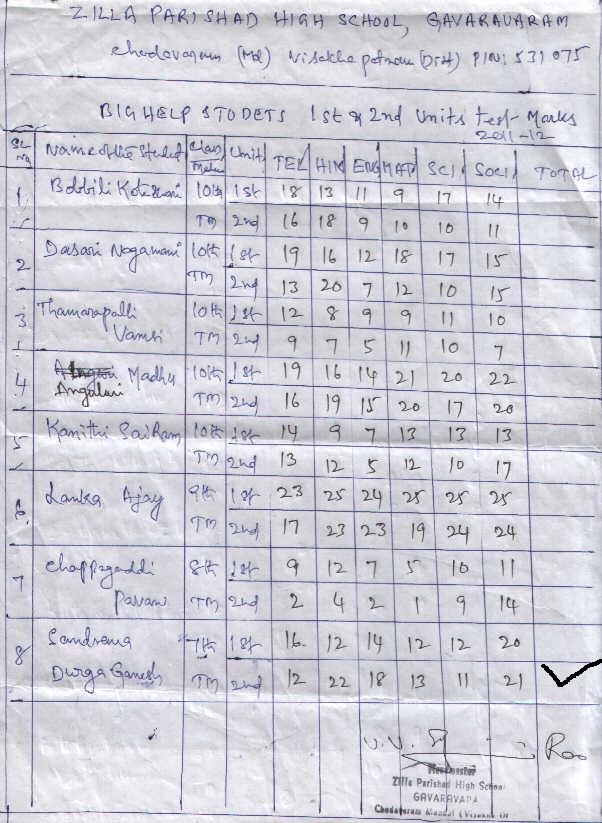 ZILLA PARISHAD HIGH SCHOOL, GAVARAVARAM
Chodavaram (Md) Visakhapatnam (Dist) PIN: 531075
BIG HELP STODETS 1st & 2nd Units test Marks
2011-12
SL No Name of the Student Class Units TEL HIN ENG MAT SCI SOCI TOTAL
1 Bobbili 10th 1st 18 13 11 9 17 14
TM 2nd 16 18 9 10 10 11
2 Dasari Nagamani 10th 1st 19 16 12 18 17 15
TM 2nd 13 20 7 12 10 15
3 Thamarapalli 10th 1st 12 8 9 9 11 10
Vamsi TM 2nd 9 7 5 11 10 7
4 Madhu 10th 1st 19 16 14 21 20 22
TM 2nd 16 19 15 20 17 20
5 Kamithi SaiRam 10th 1st 14 9 7 13 13 13
TM 2nd 13 12 5 12 10 17
6. Lanka Ajay 9th 1st 23 25 24 25 25 25
TM 2nd 17 23 23 19 24 24
7 Chappagaddi 8th 1st 9 12 7 5 10 11
Pavani TM 2nd 2 4 2 1 9 14
8 7th 1st 16. 12 14 12 12 20
Durga Ganesh TM 2nd 12 22 18 13 11 21
V.V. Rao
Zilla Parishad High School
GAVARAVARA